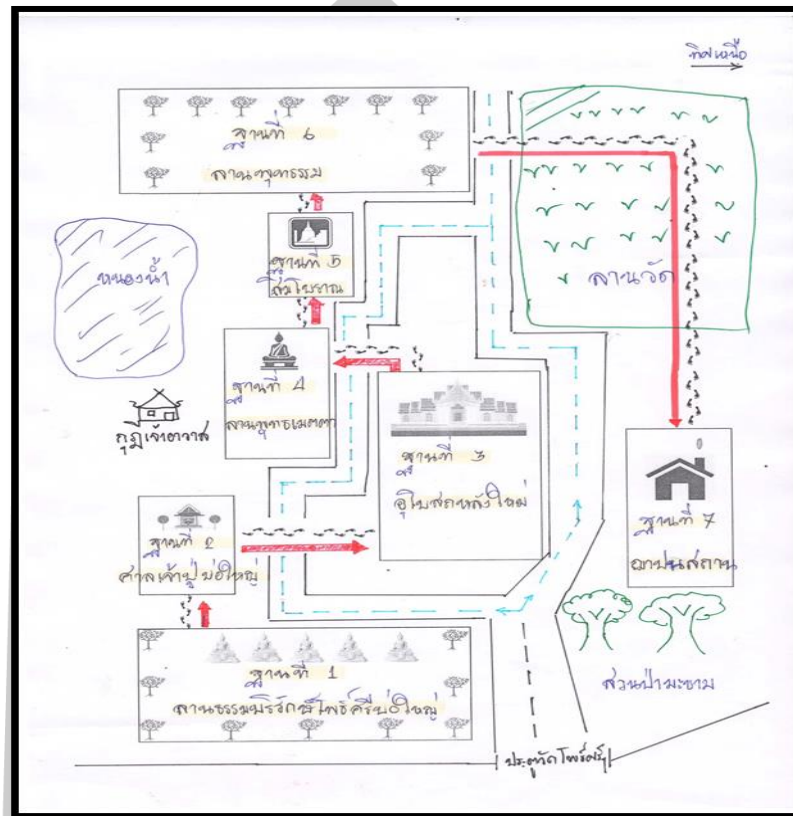 ทิศเหนือ
ฐานที่ 6
ลานพุทธธรรม
ฐานที่ 5
สิมโบราณ
หนองน้ำ
ลานวัด
ฐานที่ 4
ลานพุทธเมตตา
กุฏิเจ้าอาวาส
ฐานที่ 3
อุโบสถหลังใหม่
ฐานที่ 7
ฌาปนสถาน
ฐานที่ 2
ศาลเจ้าปู่บ่อใหญ่
ฐานที่ 1
ลานธรรมบริรักษ์โพธิ์ศรีบ่อใหญ่
สวนป่ามะขาม
ประตูวัดโพธิ์ศรี